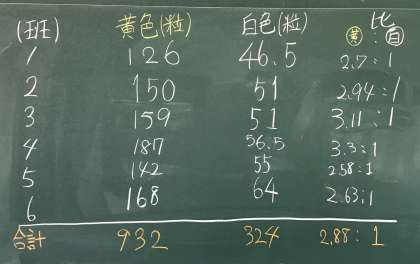 (班) 黄色(粒) 白色(粒) 比
黄:白
1 126 46.5 2.7:1
2 150 51 2.94:1
3 159 51 3.11:1
4 187 56.5 3.3:1
5 142 55 2.58:1
6 168 64 2.63:1
合計 932 324 2.88:1